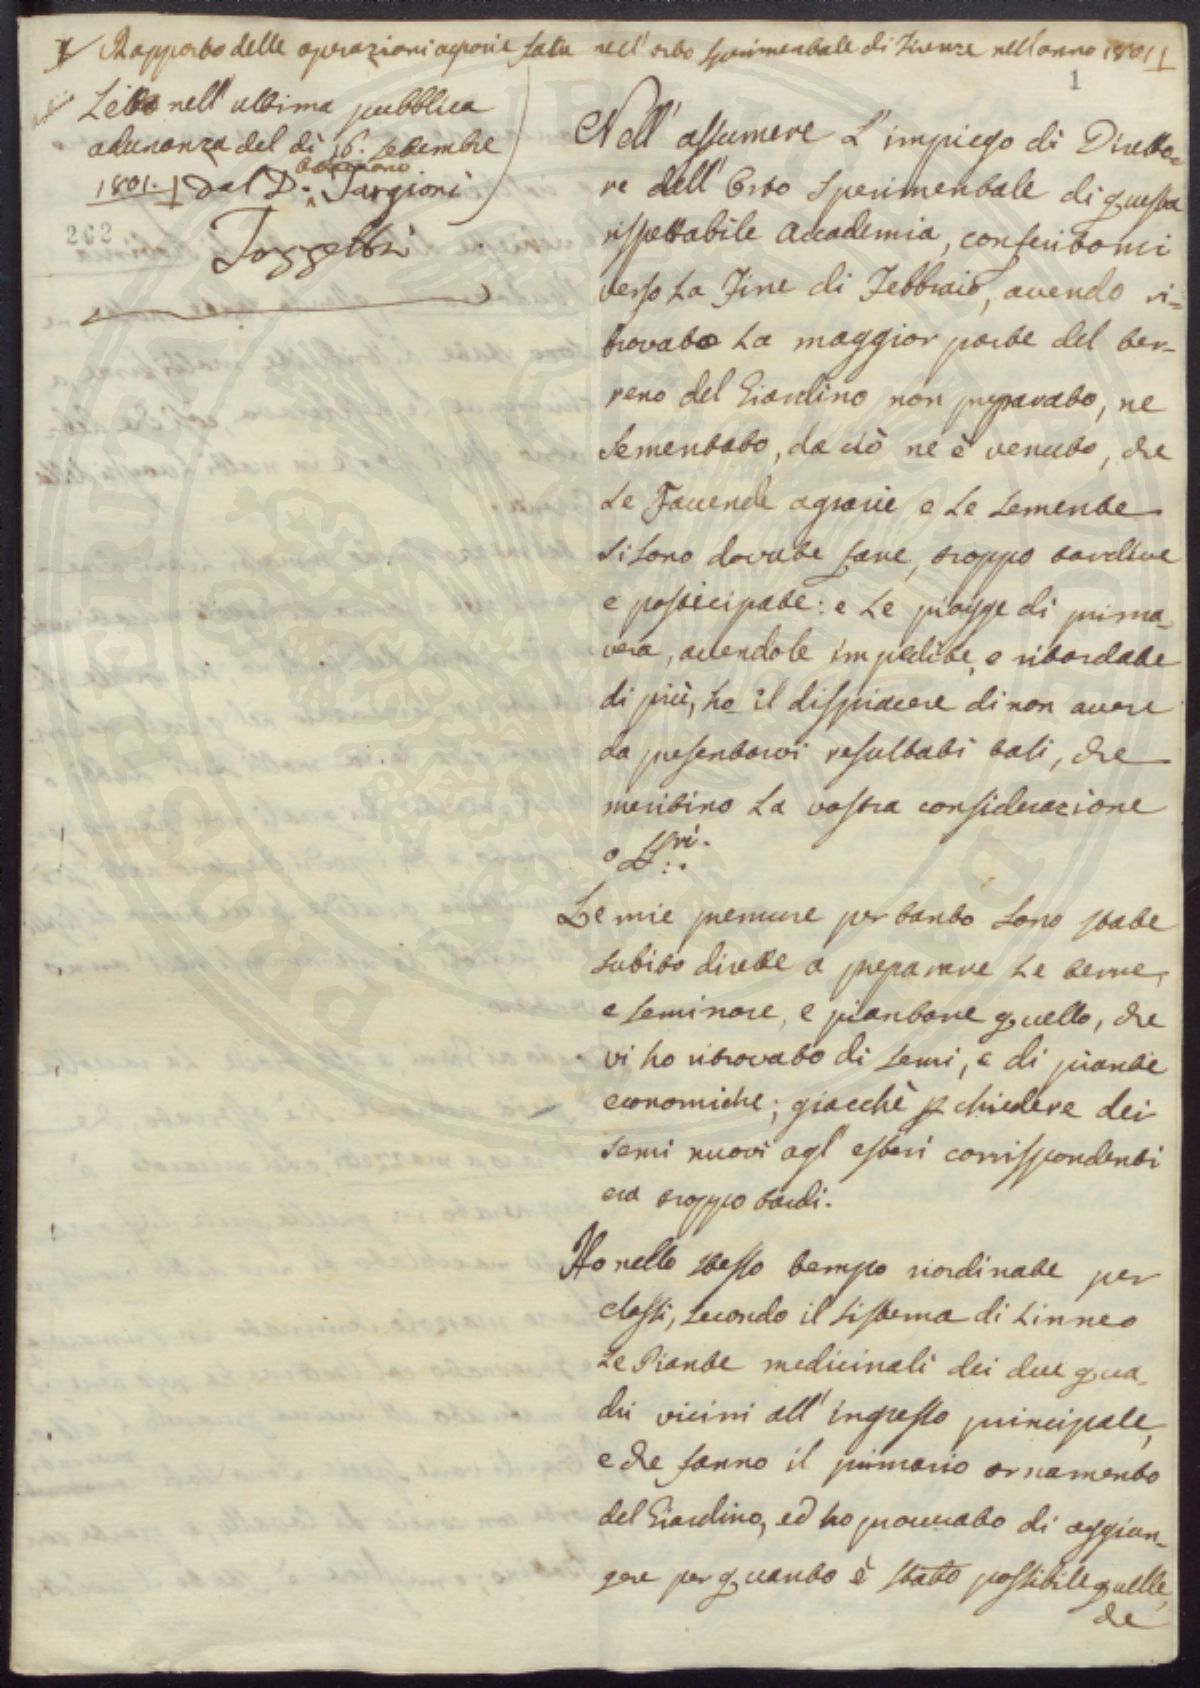 Rapporto delle operazioni agrarie fatte nell'orto sperimentale di Firenze nell'anno 1801
1
Letta nell'ultima pubblica
adunanza del dì 16. Settembre
1801. dal D. Ottaviano Targioni
Tozzetti
262
Nell'assumere l'impiego di Diretto=
re dell'Orto sperimentale di questa
rispettabile Accademia, conferitomi
verso la Fine di Febbraio, avendo ri=
trovato la maggior parte del ter=
reno del Giardino non preparato, ne
sementato, da ciò ne è venuto, che
le Faccende agrarie e le semente
si sono dovute fare, troppo tardive
e posticipate: e le piogge di prima=
vera, avendole impedite, e ritardate
di più, ho il dispiacere di non avere
da presentarvi resultati tali, che
meritino la vostra considerazione
o SSri.
Le mie premure per tanto sono state
subito dirette a preparare le terre,
e seminare, e piantare quello, che
vi ho ritrovato di semi, e di piante
economiche; giacchè p chiedere dei
semi nuovi agl'esteri corrispondenti
era troppo tardi.
Ho nello stesso tempo riordinate per
classi, secondo il sistema di Linneo
le Piante medicinali dei due qua=
dri vicini all'ingresso principale,
e che fanno il primario ornamento
del Giardino, ed ho procurato di aggiun=
gere per quanto è stato possibile quelle,
che